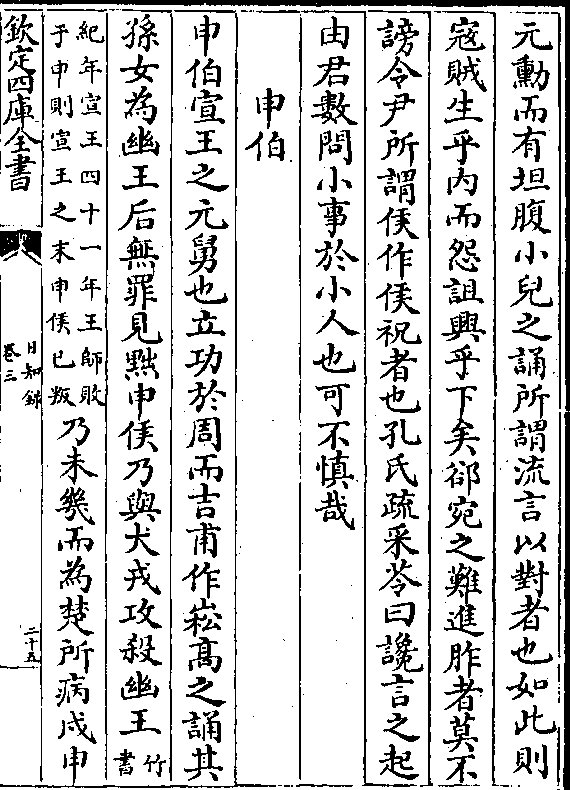 元勳而有坦腹小兒之誦所謂流言以對者也如此則
寇賊生乎内而怨詛興乎下矣郤宛之難進胙者莫不
謗令尹所謂侯作侯祝者也孔氏疏采苓曰讒言之起
由君數問小事於小人也可不慎哉
申伯
申伯宣王之元舅也立功於周而吉甫作崧高之誦其
孫女為幽王后無罪見黜申侯乃與犬戎攻殺幽王竹書
紀年宣王四十一年王師敗于申則宣王之末申侯已叛乃未幾而為楚所病戍申
欽定四庫全書
日知錄
卷三
二十五